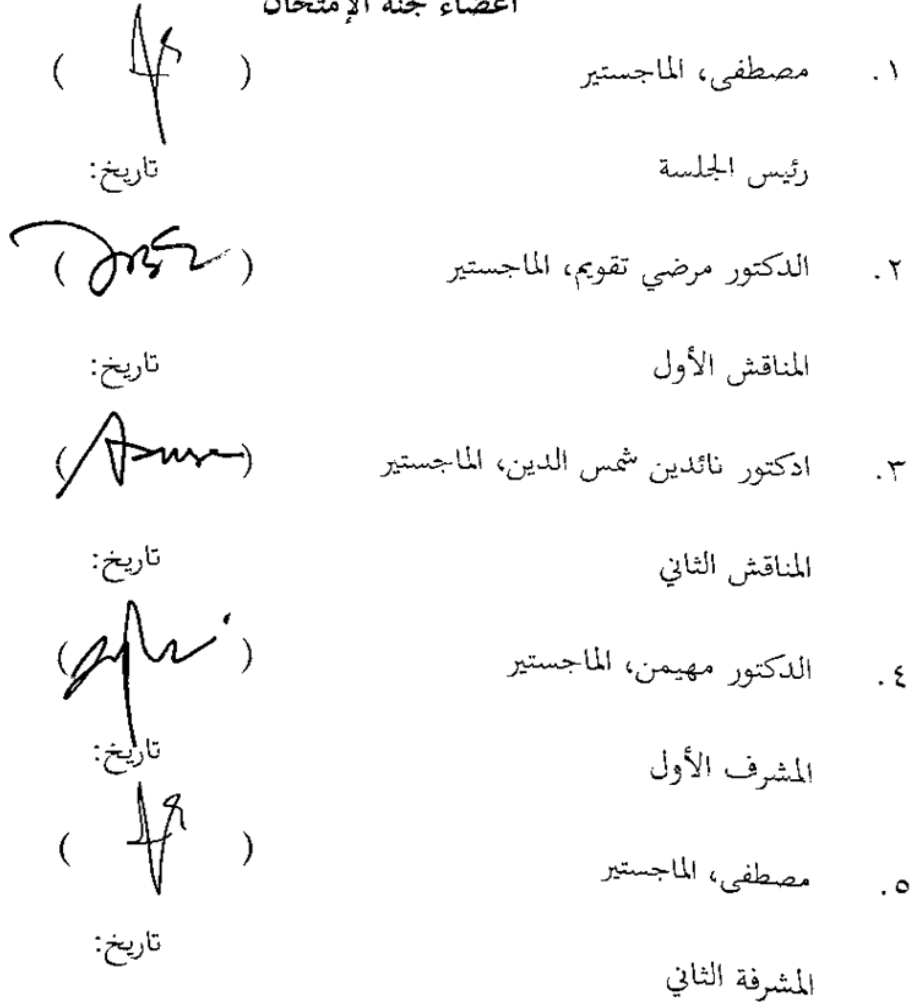 أعضاء لجنة الإمتحان
١. مصطفى، الماجستير ( )
رئيس الجلسة تاريخ:
٢. الدكتور مرضي تقويم، الماجستير ( )
المناقش الأول تاريخ:
٣. ادكتور نائدين شمس الدين، الماجستير ( )
المناقش الثاني تاريخ:
٤. الدكتور مهيمن، الماجستير ( )
المشرف الأول تاريخ:
٥. مصطفى، الماجستير ( )
المشرفة الثاني تاريخ: